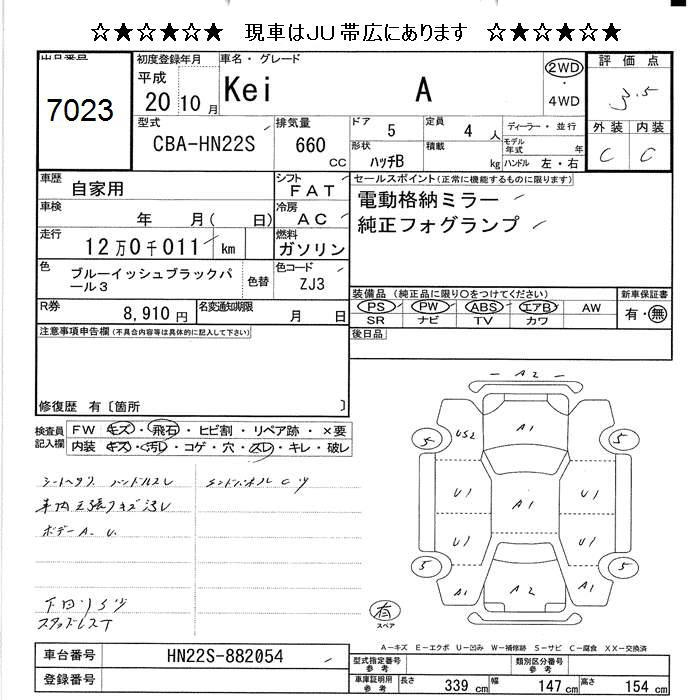 ☆★☆★☆★☆ 現車はJU帯広にあります ☆★☆★☆★☆
出品番号
7023
初度登録年月
平成
20 10 月
車名・グレード
Kei A
2WD
・
4WD
評価点
3.5
外装 内装
C C
型式
CBA-HN22S
排気量
660
CC
ドア 5
定員 4 人
ディーラー・並行
モデル年式 年
形状 ハッチB
積載 kg
ハンドル 左・右
車歴
自家用
シフト
FAT
セールスポイント(正常に機能するものに限ります)
電動格納ミラー
純正フォグランプ
車検
年 月( 日)
冷房
AC
走行
12万0千011 km
燃料
ガソリン
色
ブルーイッシュブラックパール3
色替
色コード
ZJ3
装備品(純正品に限り○をつけてください)
PS PW ABS エアB AW
SR ナビ TV カワ
新車保証書
有・無
R券
8,910円
名変通知期限
月 日
後日品
注意事項申告欄(不具合内容等は具体的に記入して下さい)
修復歴 有〔箇所 〕
検査員記入欄
FW キズ・飛石・ヒビ割・リペア跡・×要
内装 キズ・汚レ・コゲ・穴・スレ・キレ・破レ
ボデーA. U.
A2
A1
5 US2 5
U1 A1 U1
U1 U1
5 A1 A2 A1 5
有
スペア
A―キズ E―エクボ U―凹み W―補修跡 S―サビ C―腐食 XX―交換済
車台番号
HN22S-882054
登録番号
型式指定番号
参考
類別区分番号
参考
車庫証明用
参考
長さ 339 cm 幅 147 cm 高さ 154 cm